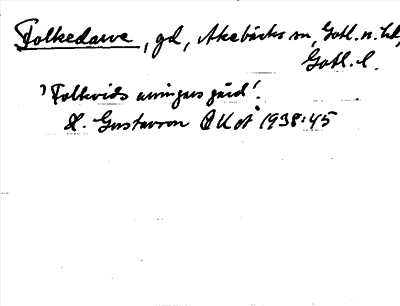 Folkedarve, gd, Akebäcks sn, Gotl. n. hd,
Gotl. l.
'Folkvids arvingars gård'.
H. Gustavson GUÅ 1938:45